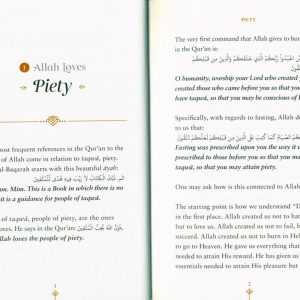 1 Allah Loves
Piety
ost frequent references in the Qur'an to the
of Allah come in relation to taqwā, piety.
al-Baqarah starts with this beautiful āyah:
الم ذَلِكَ الْكِتَابُ لَا رَيْبَ فِيهِ هُدًى لِلْمُتَّقِينَ
m. Mim. This is a Book in which there is no
it is a guidance for people of taqwā.
of taqwā, people of piety, are the ones
loves. He says in the Qur'an: إِنَّ اللَّهَ يُحِبُّ الْمُتَّقِينَ
llah loves the people of piety.
1
PIETY
The very first command that Allah gives to human
in the Qur'an is:
اعْبُدُوا رَبَّكُمُ الَّذِي خَلَقَكُمْ وَالَّذِينَ مِنْ قَبْلِكُمْ لَعَلَّكُمْ
O humanity, worship your Lord who created yo
created those who came before you so that you may
have taqwā, so that you may be conscious of H
Specifically, with regards to fasting, Allah de
to us that:
الصِّيَامُ كَمَا كُتِبَ عَلَى الَّذِينَ مِنْ قَبْلِكُمْ لَعَلَّكُمْ تَتَّقُونَ
Fasting was prescribed upon you the way it w
prescribed to those before you so that you m
taqwā, so that you may attain piety.
One may ask how is this connected to Allah
The starting point is how we understand "D
in the first place. Allah created us not to hat
but to love us. Allah created us not to fail, b
succeed. Allah created us not to burn in Hel
to go to Heaven. He gave us everything that
needed to attain His reward. He has given us
essentials needed to attain His pleasure but
2